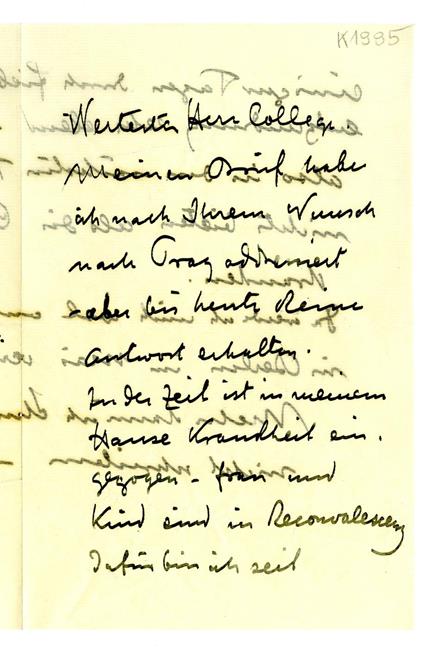 K1995
Wertester Herr College.
Meinen Brief habe
ich nach Ihrem Wunsch
nach Prag addressiert
- aber bis heute keine
Antwort erhalten.
In der Zeit ist in meinem
Hause Krankheit ein.
gezogen - Frau und
Kind sind in Reconvalescenz
Dafür bin ich seit